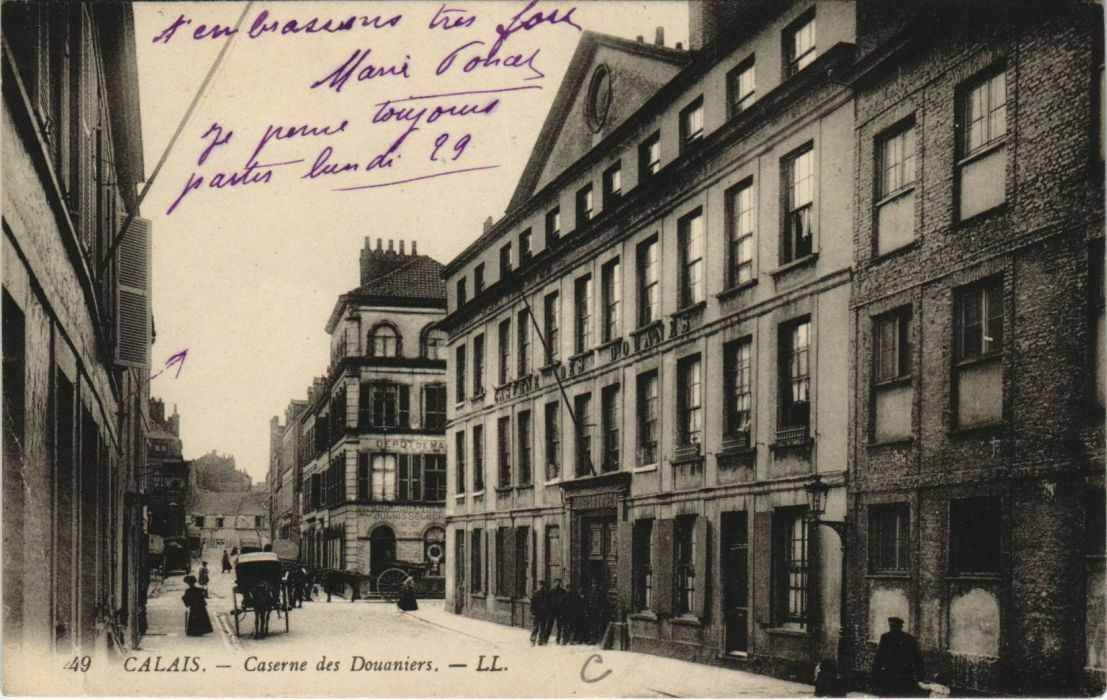 t'embrassons très fort
Marie
Je pense toujours
partir lundi 29
CASERNE DES DOUANES
DEPOT DE MA
49 CALAIS. — Caserne des Douaniers. — LL.
C